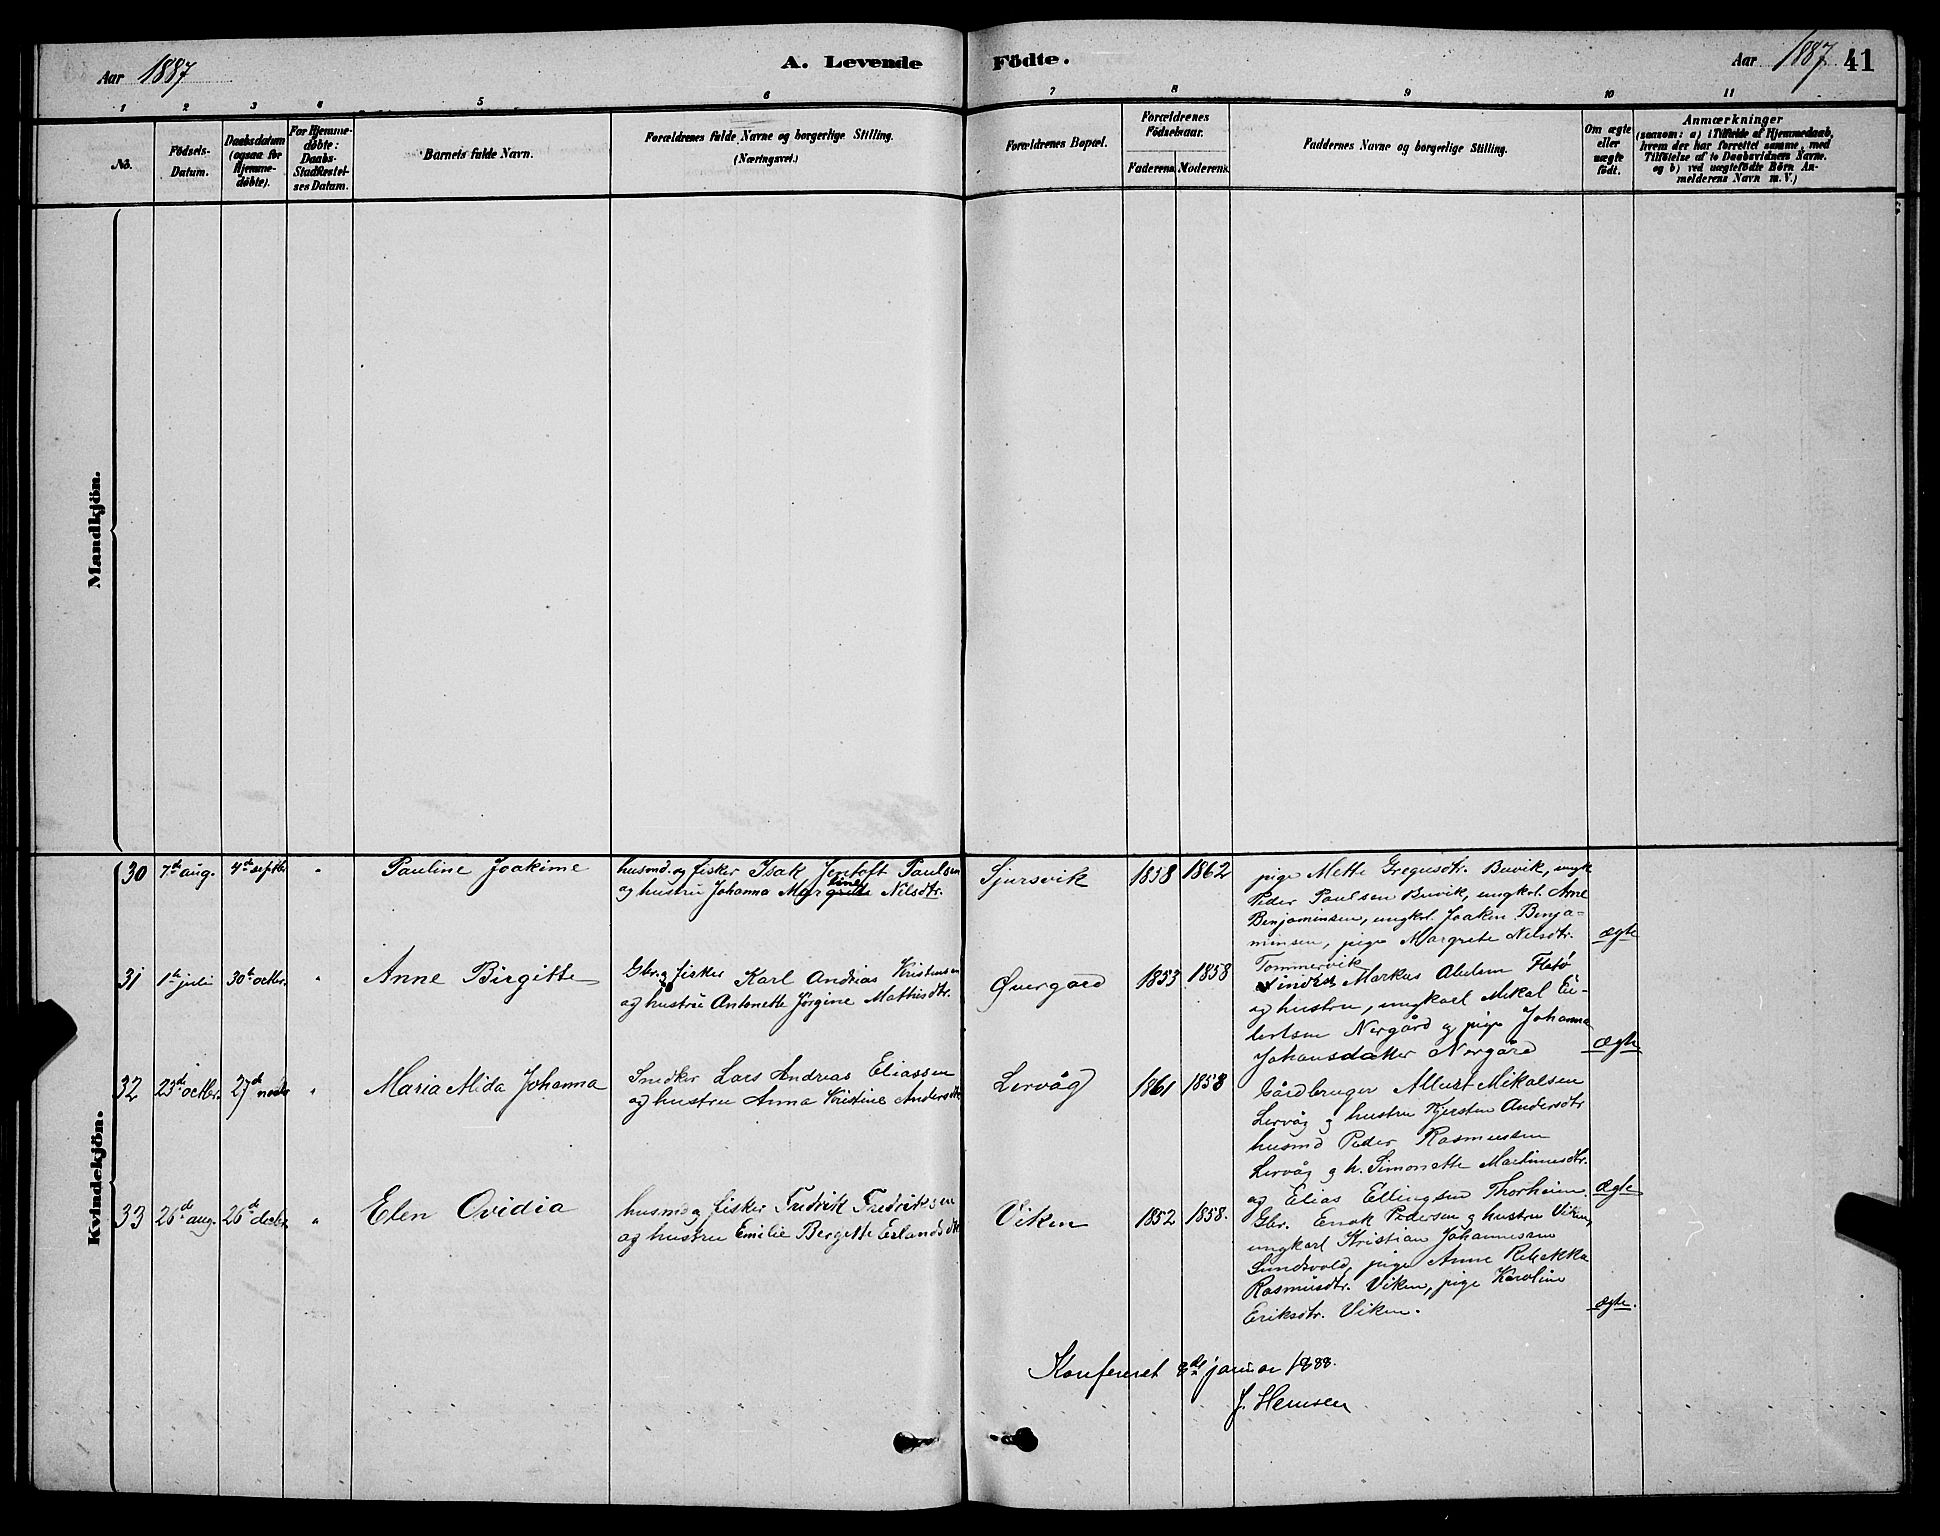 Aar 1887
A. Levende Födte.
Aar 1887 41
1 2 3 4 5 6 7 8 9 10 11
No.
Födsels-
Datum.
Daabsdatum
(ogsaa for
Hjemme-
døbte).
For Hjemme-
døbte:
Daabs-
Stadfæstel-
ses Datum.
Barnets fulde Navn.
Forældrenes fulde Navne og borgerlige Stilling.
(Næringsvei.)
Forældrenes Bopæl.
Forældrenes
Födselsaar.
Faderens. Moderens.
Faddernes Navne og borgerlige Stilling.
Om ægte
eller
uægte
födt.
Anmærkninger
(saasom: a) i Tilfælde af Hjemmedaab,
hvem der har forrettet samme, med
Tilföielse af to Daabsvidners Navne.
og b) ved uægtefödte Börn An-
melderens Navn m. V.)
Mandkjön.
Kvindekjön.
30 7de aug. 4de septbr. " Pauline Joakime
husmd. og fisker Isak Jentoft Paulsen
og hustru Johanna Margrete Nelsdtr.
Sjursvik 1858 1862
pige Mette Gregusdtr. Buvik, ungk
Peder Paulsen Buvik, ungkrl. Arne
Benjaminsen, ungkrl. Joaken Benja-
minsen, pige Margrete Nelsdtr.
Tommervik
ægte
31 1te juli 30te octbr. " Anne Birgitte
Gbr. og fisker Karl Andrias Kristensen
og hustru Antonette Jørgine Mathisdtr.
Øvergård 1853 1858
Markus Abelsen Fletø
og hustru, ungkarl Mikal Ei-
lertsen Nergård og pige Johanna
Johansdatter Nergård
ægte
32 23de octbr. 27de novbr " Maria Alida Johanna
Snedker Lars Andreas Eliassen
og hustru Anna Kristine Andersdtr
Lervåg 1861 1858
Gårdbruger Albert Mikalsen
Lervåg og hustru Kjersten Andersdtr
husmd Peder Rasmussen
Lervåg og h. Simonette Martinusdtr.
og Elias Ellingsen Thorheim.
ægte
33 26de aug. 26de decbr. " Elen Ovidia
husmd og fisker Fredrik Fredriksen
og hustru Emilie Bergette Erlandsdtr
Viken 1852 1858.
Gbr. Enok Pedersen og hustru Viken,
ungkarl Kristian Johannesen
Sundsvold, pige Anne Rebekka
Rasmusdtr. Viken, pige Karoline
Eriksdtr. Viken.
ægte.
Konfereret 8de januar 1888.
J. Hemsen